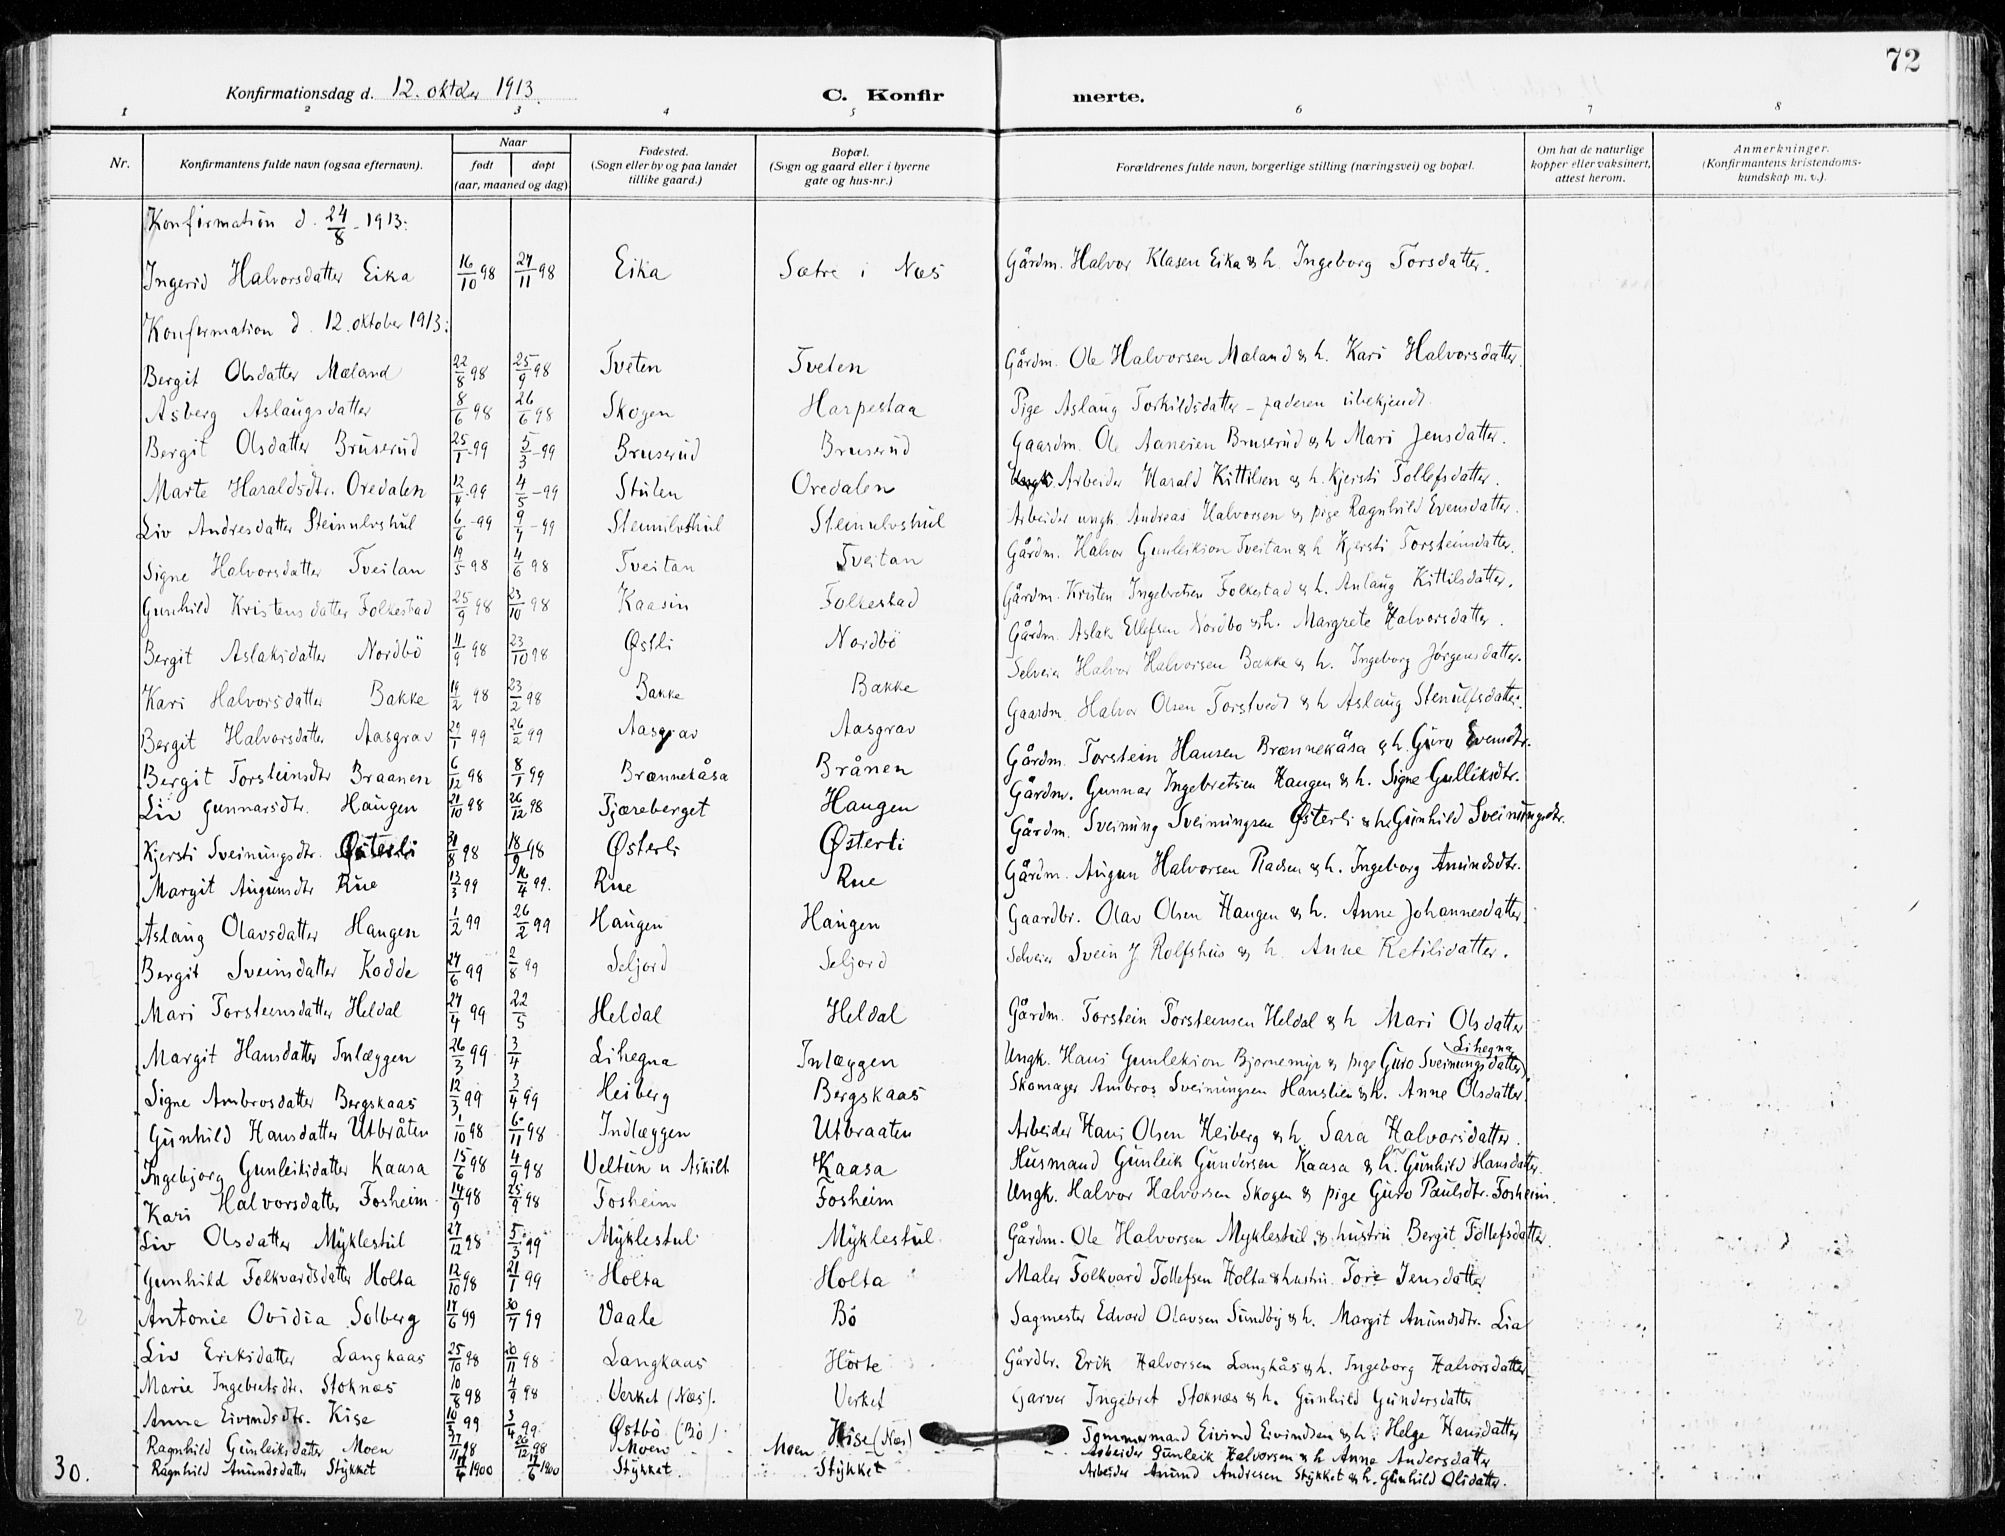 72
Konfirmationsdag d. 12. oktober 1913.
C. Konfirmerte.
1 2 3 4 5 6 7 8
Nr. Konfirmantens fulde navn (ogsaa efternavn). Naar født døpt (aar, maaned og dag) Fødested. (Sogn eller by og paa landet tillike gaard.) Bopæl. (Sogn og gaard eller i byerne gate og hus-nr.) Forældrenes fulde navn, borgerlige stilling (næringsvei) og bopæl. Om hat de naturlige kopper eller vaksinert, attest herom. Anmerkninger. (Konfirmantens kristendoms-kundskap m. v.).
Konfirmation d. 24/8 - 1913:
Ingerid Halvorsdatter Eika 16/10 98 27/11 98 Eika Sætre i Næs Gårdm. Halvor Klasen Eika & h. Ingeborg Torsdatter.
Konfirmation d. 12. oktober 1913:
Bergit Olsdatter Mæland 22/8 98 25/9 98 Tveten Tveten Gårdm. Ole Halvorsen Mæland & h. Kari Halvorsdatter
Asberg Aslaugsdatter 8/6 98 26/6 98 Skogen Harpestaa Pige Aslaug Torkildsdatter - faderen ubekjendt.
Bergit Olsdatter Bruserud 25/1 -99 5/3 -99 Bruserud Bruserud Gaardm. Ole Aanesen Bruserud & h Mari Jensdatter.
Marte Haraldsdtr. Oredalen 12/4 -99 4/5 -99 Stulen Oredalen Arbeider Harald Kittilsen & h. Kjersti Tollefsdatter.
Liv Andresdatter Steinulvshul 6/6 -99 9/7 -99 Steinulvshul Steinulvshul Arbeider ungk. Andreas Halvorsen & pige Ragnhild Evensdatter.
Signe Halvorsdatter Tveitan 19/5 98 4/6 98 Tveitan Tveitan Gårdm. Halvor Gunleikson Tveitan & h Kjersti Torsteinsdatter.
Gunhild Kristensdatter Folkestad 25/9 98 23/10 98 Kaasin Folkestad Gårdm. Kristen Ingebretsen Folkestad & h. Anlaug Kittilsdatter.
Bergit Aslaksdatter Nordbö 11/9 98 23/10 98 Østli Nordbö Gårdm. Aslak Ellefsen Nordbo & h. Margrete Halvorsdatter.
Kari Halvorsdatter Bakke 19/2 98 23/2 98 Bakke Bakke Selveier Halvor Halvorsen Bakke & h. Ingeborg Jörgensdatter.
Bergit Halvorsdatter Aasgrav 29/1 99 26/2 99 Aasgrav Aasgrav Gaardm. Halvor Olsen Torstvedt & h Aslaug Stenulfsdatter.
Bergit Torsteinsdtr Braanen 6/12 98 8/1 99 Brænnekåsa Brånen Gårdm. Torstein Hansen Brænnekåsa & h. Guro Evensdtr.
Liv Gunnarsdtr. Haugen 21/10 98 26/12 98 Tjæreberget Haugen Gårdm. Gunnar Ingebretsen Haugen & h. Signe Gulliksdtr.
Kjersti Sveinungsdtr. Østerli 31/8 98 18/9 98 Østerli Østerli Gårdm. Sveinung Sveinungsen Østerli & h. Gunhild Sveinungsdtr.
Margit Augunsdtr Rue 13/3 99 16/4 99. Rue Rue Gårdm. Augun Halvorsen & h. Ingeborg Amundsdtr.
Aslaug Olavsdatter Haugen 1/2 99 26/2 99 Haugen Haugen Gaardbr. Olav Olsen Haugen & h. Anne Johannesdatter
Bergit Sveinsdatter Kodde 24/6 99 2/8 99 Seljord Seljord Selveier Svein J Rolfshus & h. Anne Ketilsdatter.
Mari Torsteensdatter Heldal 27/4 99 22/5 Heldal Heldal Gårdm. Torstein Torsteinsen Heldal & h Mari Olsdatter
Margit Hansdatter Inlæggen 26/3 99 3/4 Lihegna Inlæggen Ungk. Hans Gunlekson Bjørnemyr & pige Guro Sveinungsdatter Lihegna
Signe Ambrosdatter Bergskaas 12/3 99 3/4 99 Heiberg Bergskaas Skomager Ambros Sveinungsen Hanslien & h. Anne Olsdatter.
Gunhild Hansdatter Utbråten 1/10 98 6/11 98 Indlæggen Utbraaten Arbeider Hans Olsen Heiberg & h. Sara Halvorsdatter.
Ingebjorg Gunleiksdatter Kaasa 15/6 98 4/9 98 Veltun u Askilt Kaasa Husmand Gunleik Gundersen Kaasa & h. Gunhild Hansdatter.
Kari Halvorsdatter Fosheim 14/9 98 25/9 98 Fosheim Fosheim Ungk. Halvor Halvorsen Skogen & pige Guro Paulsdtr. Fosheim.
Liv Olsdatter Myklestul 27/12 98 5/3 99 Myklestul Myklestul Gårdm. Ole Halvorsen Myklestul & hustru Bergit Tollefsdatter.
Gunhild Folkvardsdatter Holta 12/10 98 21/1 99 Holta Holta Maler Folkvard Tollefsen Holta & hustru Tore Jensdatter
Antonie Ovidia Solberg 17/6 99 30/7 99 Vaale Bö Sagmester Edvard Olavsen Sundby & h. Margit Amundsdtr. Lia
Liv Eriksdatter Langkaas 25/10 98 20/11 98 Langkaas Hörte Gårdbr. Erik Halvorsen Langkås & h. Ingeborg Halvorsdatter
Marie Ingebretsdtr. Stoknæs 10/8 98 4/9 98 Verket (Næs). Verket Garver Ingebret Stoknæs & h. Gunhild Gundersdatter
Anna Eivindsdtr. Kise 10/3 99 3/4 99. Østbö (Bö) Kise (Næs) Tømmermand Eivind Eivindsen & h. Helge Hansdatter
Ragnhild Gunleiksdatter Moen 27/11 98 26/12 98 Moen Moen Arbeider Gunleik Halvorsen & h Anne Andersdatter
30. Ragnhild Amundsdatter Stykket 17/4 1900 17/6 1900 Stykket. Stykket Arbeider Amund Andresen Stykket & h. Gunhild Olsdatter.